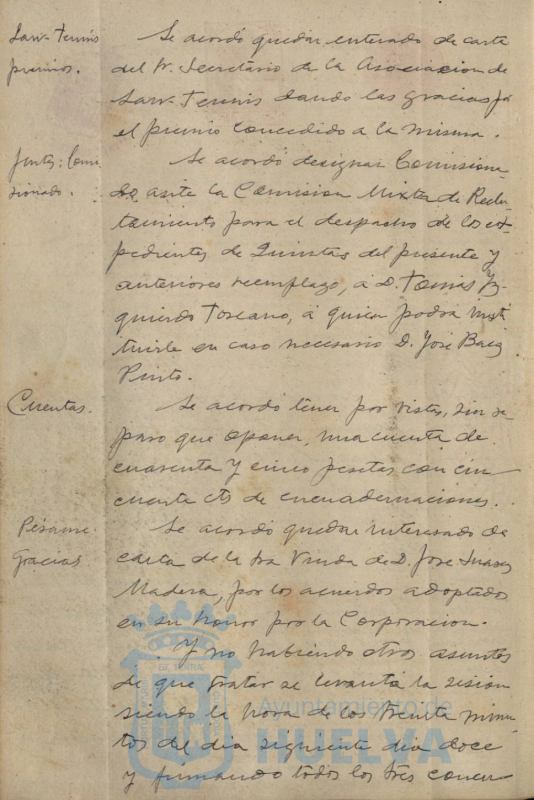 Lawn-Tennis
premios.
Se acordó quedar enterado de carta
del Sr. Secretario de la Asociacion de
Lawn-Tennis dando las gracias por
el premio concedido a la misma.
Juntas: Comi
sionado.
Se acordó designar Comisiona
do ante la Comision Mixta de Reclu-
tamiento para el despacho de los ex-
pedientes de Quintas del presente y
anteriores reemplazo, á D. Tomás Yz-
quierdo Toscano, á quien podrá susti
tuirle en caso necesario D. José Baez
Pinto.
Cuentas.
Se acordó tener por vistas, sin re
paro que oponer, una cuenta de
cuarenta y cinco pesetas con cin
cuenta cts de encuadernaciones.
Pésame.
Gracias
Se acordó quedar interesado de
carta de la Sra Viuda de D. José Suarez
Madera, por los acuerdos adoptados
en su honor por la Corporacion.
Y no habiendo otros asuntos
de que tratar se levantó la sesion
siendo la hora de los treinta minu
tos del dia siguiente dia doce
y firmando todos los tres concu-
Ayuntamiento de
HUELVA